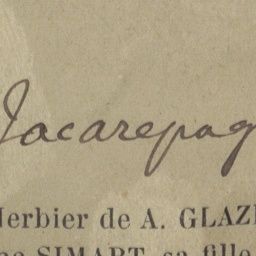 Jacarepag
Herbier de A. GLAZI
me SIMART, sa fille